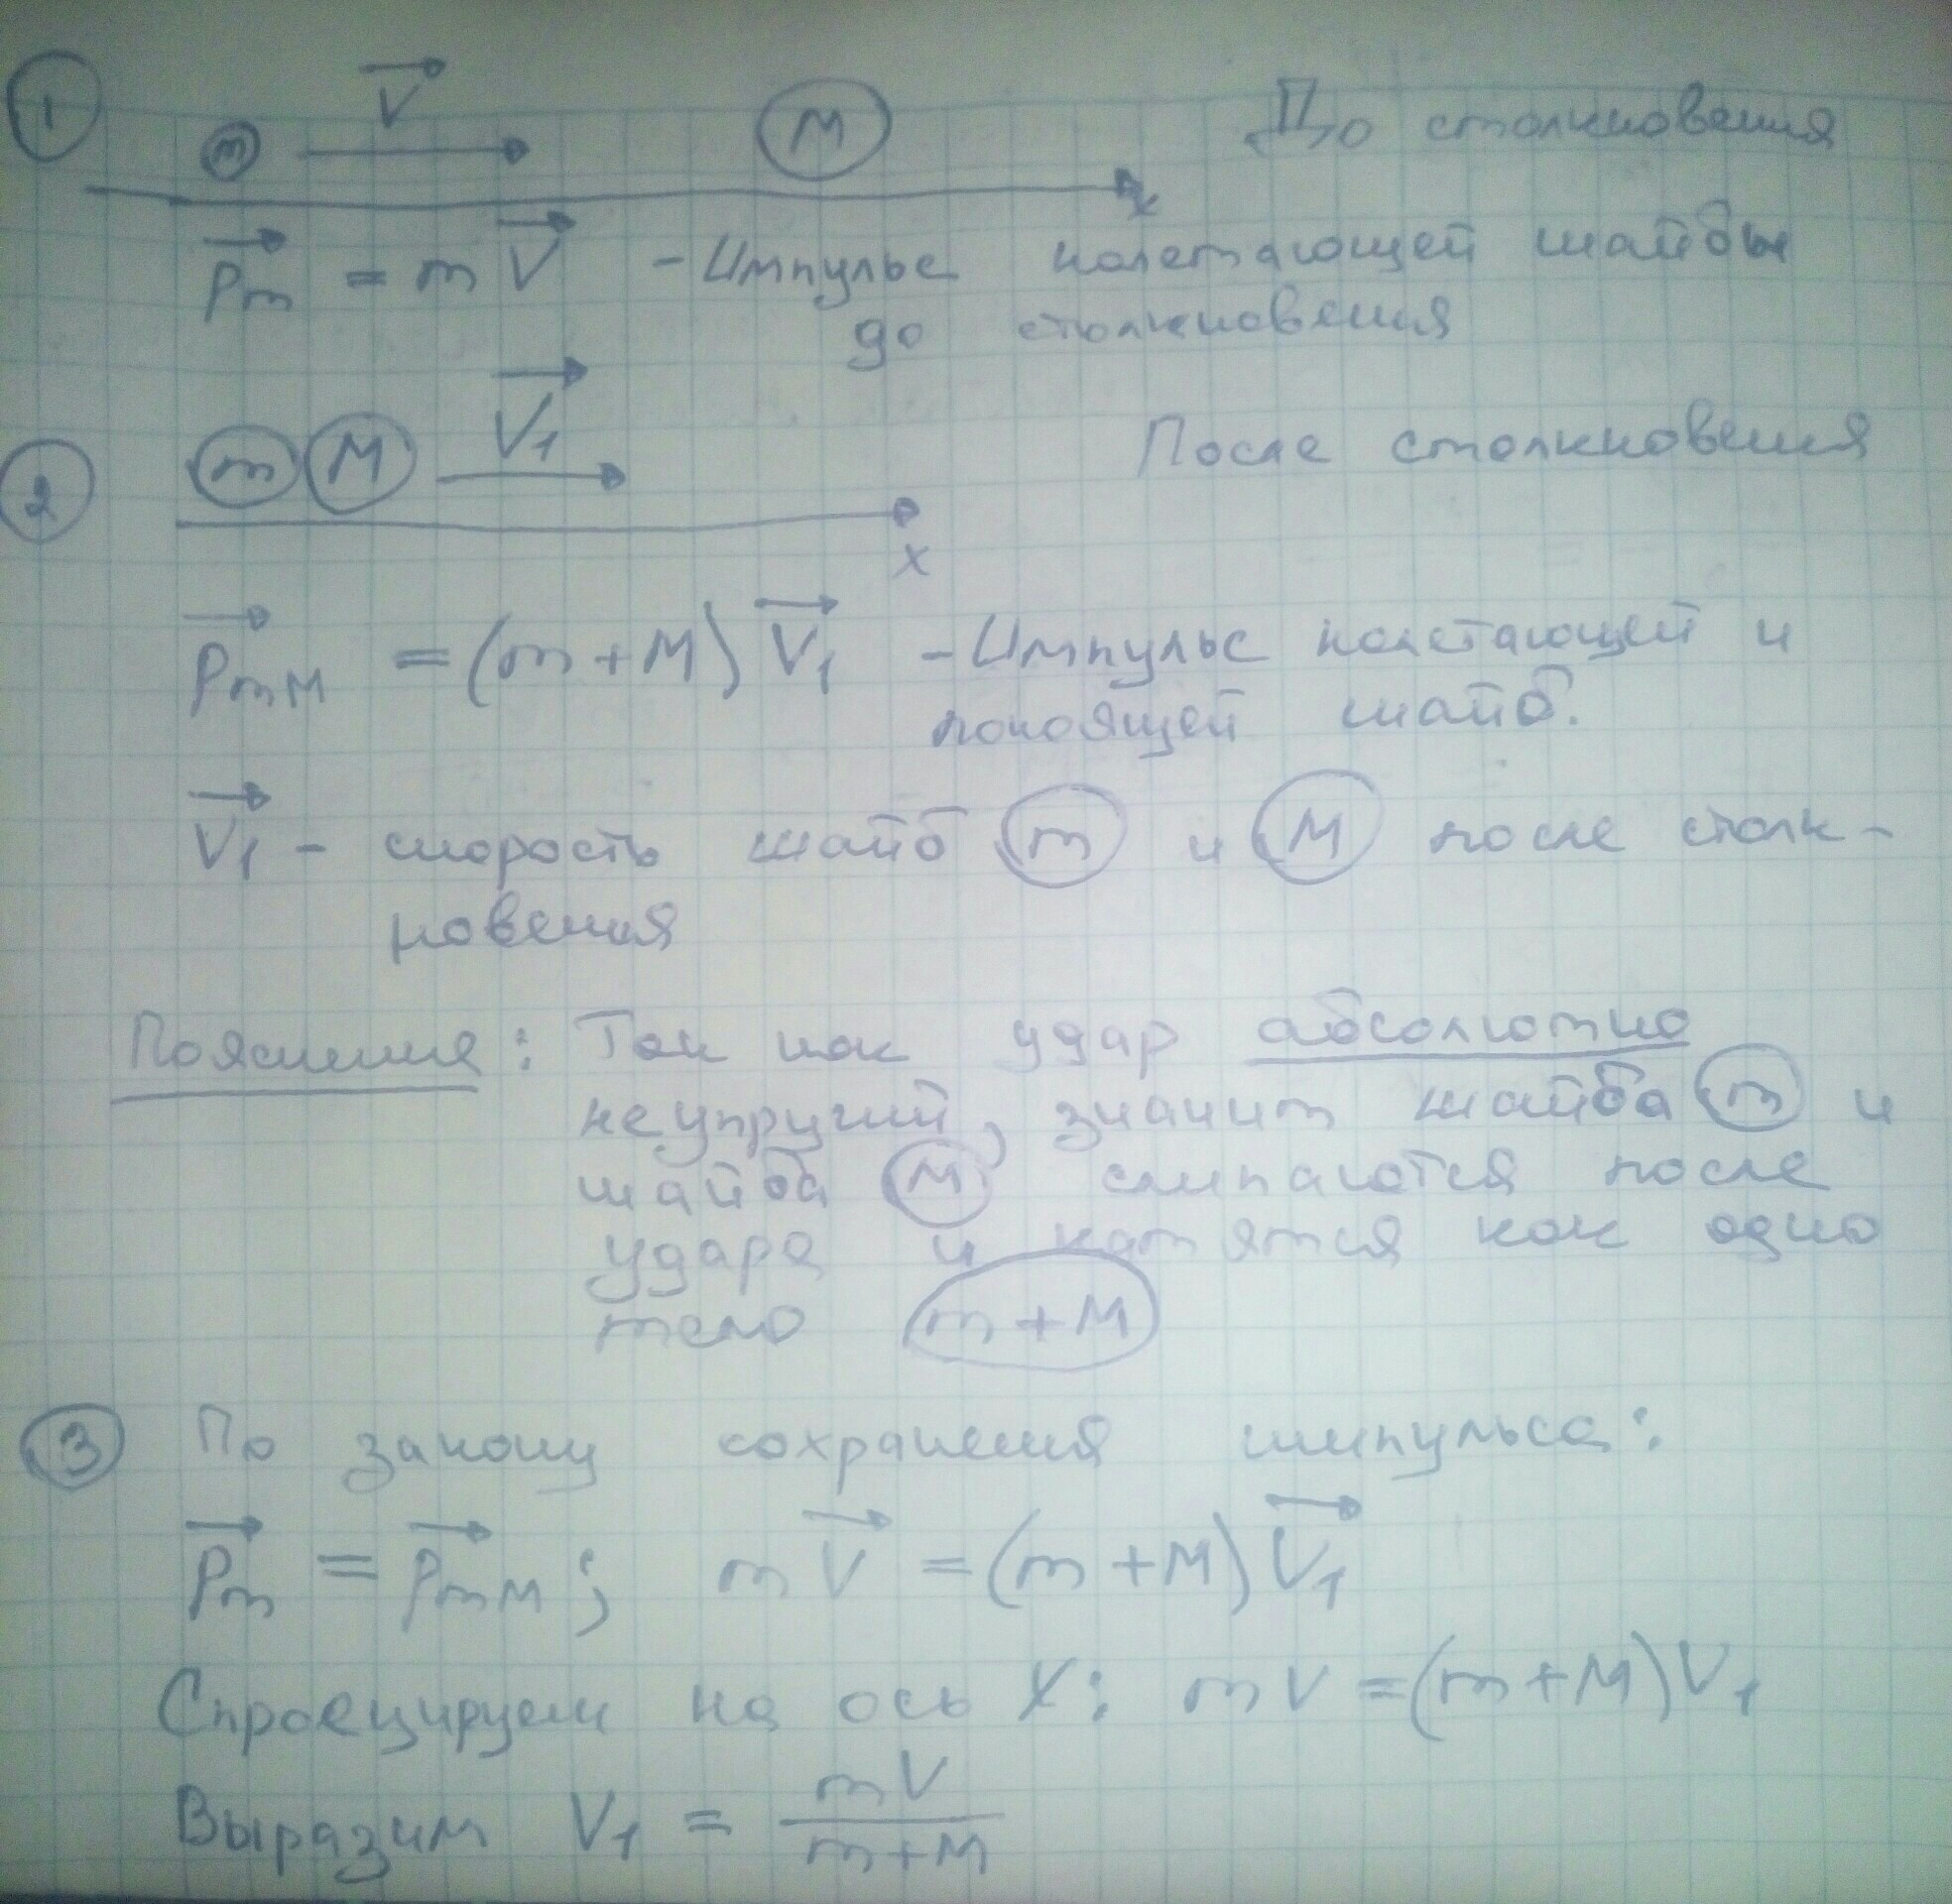 1 m V⃗ M До столкновения
x
P⃗m = m V⃗ - Импульс налетающей шайбы
до столкновения
2 m M V⃗1 После столкновения
x
P⃗mM = (m+M) V⃗1 - Импульс налетающей и
покоящей шайб.
V⃗1 - скорость шайб m и M после столк-
новения
Пояснения: Так как удар абсолютно
неупругий, значит шайба m и
шайба M слипаются после
удара и катятся как одно
тело m+M
3 По закону сохранения импульса:
P⃗m = P⃗mM; mV⃗ = (m+M)V⃗1
Спроецируем на ось X: mV = (m+M)V1
Выразим V1 = mV / m+M